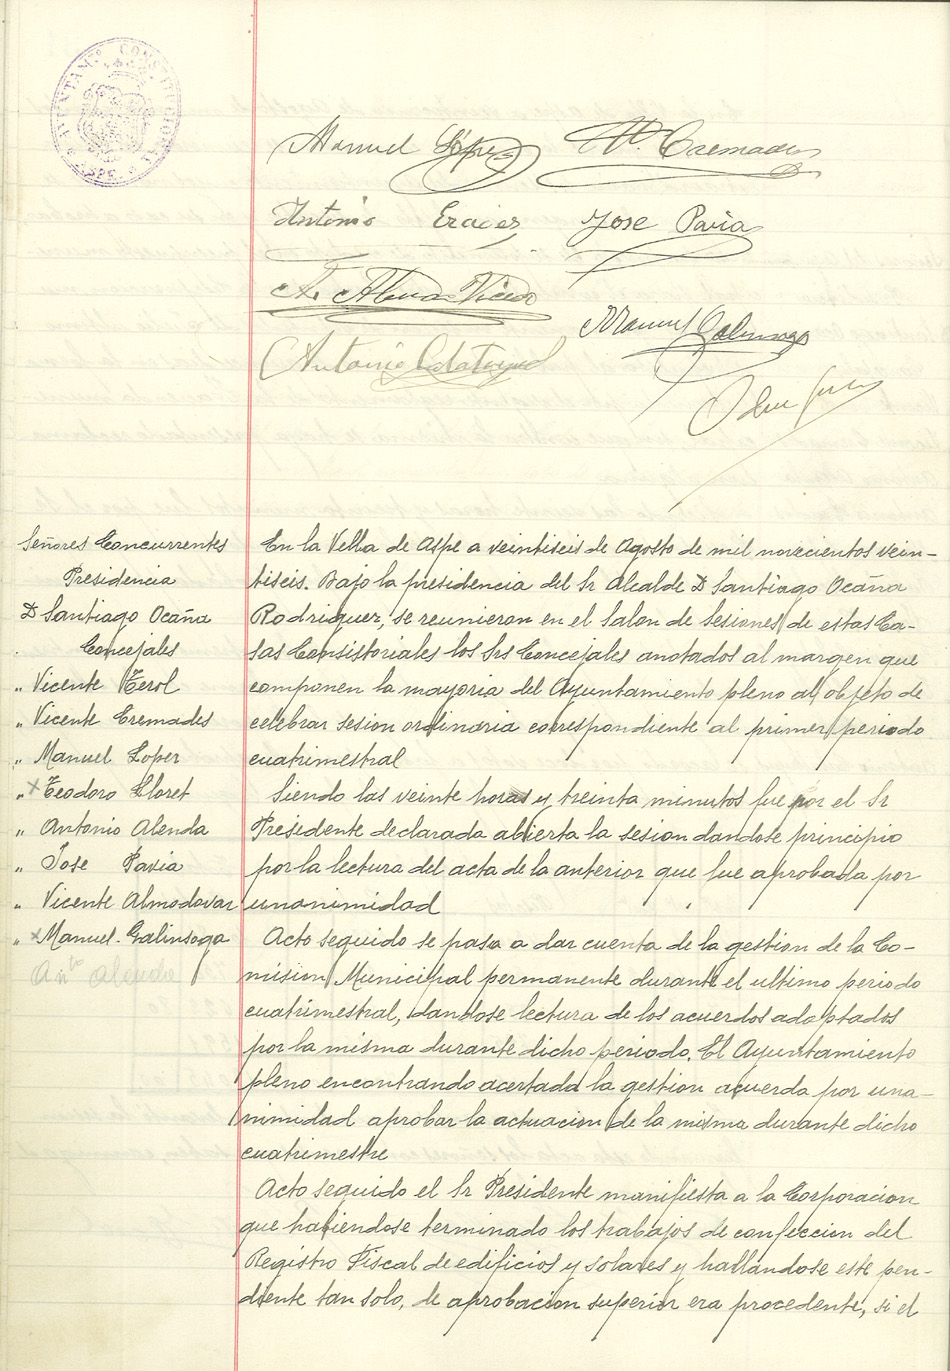 AYUNTAMº CONSTITUCIONAL
ASPE
Manuel López Vte. Cremades
Antonio José Pavia
A. Almodovar Vicente
Manuel Galinsoga
Antonio Calatayud
Señores Concurrentes
Presidencia
D Santiago Ocaña
Concejales
" Vicente Terol
" Vicente Cremades
" Manuel Loper
" Teodoro Lloret
" Antonio Alenda
" Jose Pavia
" Vicente Almodovar
" Manuel Galinsoga
Anto Alenda
En la Villa de Aspe a veintiseis de Agosto de mil novecientos vein-
tiseis. Bajo la presidencia del Sr Alcalde D Santiago Ocaña
Rodriguez, se reunieron en el Salon de Sesiones de estas Ca-
sas Consistoriales los Srs Concejales anotados al margen que
componen la mayoria del Ayuntamiento pleno al objeto de
celebrar sesion ordinaria correspondiente al primer periodo
cuatrimestral
Siendo las veinte horas y treinta minutos fue por el Sr
Presidente declarada abierta la sesion dandose principio
por la lectura del acta de la anterior que fue aprobada por
unanimidad
Acto seguido se pasa a dar cuenta de la gestion de la Co-
mision Municipal permanente durante el ultimo periodo
cuatrimestral, dandose lectura de los acuerdos adoptados
por la misma durante dicho periodo. El Ayuntamiento
pleno encontrando acertada la gestion acuerda por una-
nimidad aprobar la actuacion de la misma durante dicho
cuatrimestre
Acto seguido el Sr Presidente manifiesta a la Corporacion
que habiendose terminado los trabajos de confeccion del
Registro Fiscal de edificios y solares y hallandose este pen-
diente tan solo, de aprobacion superior era procedente, si el